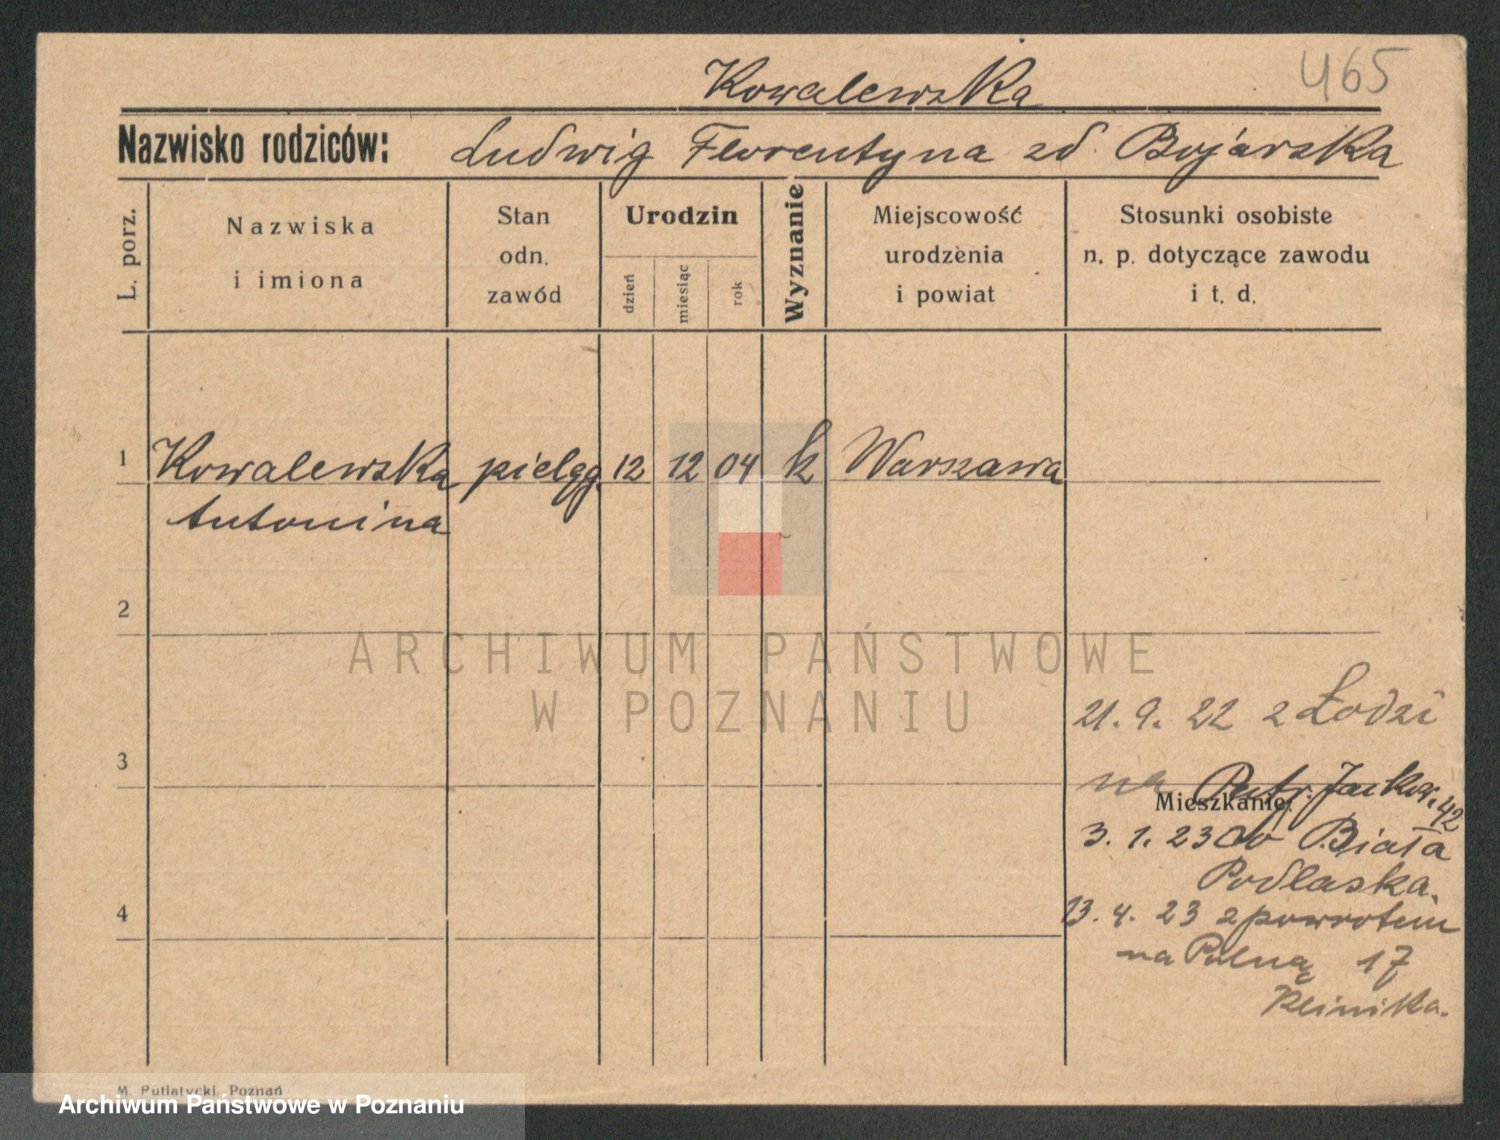 465
Kowalewska
Nazwisko rodziców: Ludwig Florentyna zd. Bojarska
L. porz.
Nazwiska
i imiona
Stan
odn.
zawód
Urodzin
dzień
miesiąc
rok
Wyznanie
Miejscowość
urodzenia
i powiat
Stosunki osobiste
n. p. dotyczące zawodu
i t. d.
1 Kowalewska pielęg. 12 12 04 k Warszawa
Antonina
2
ARCHIWUM PAŃSTWOWE
W POZNANIU
21. 9. 22 z Łodzi
3
na Patr. Jackow. 42
Mieszkanie:
3. 1. 23 do Biała
Podlaska.
4
13. 4. 23 z powrotem
na Polną 17
Klinika.
M. Putiatycki, Poznań
Archiwum Państwowe w Poznaniu